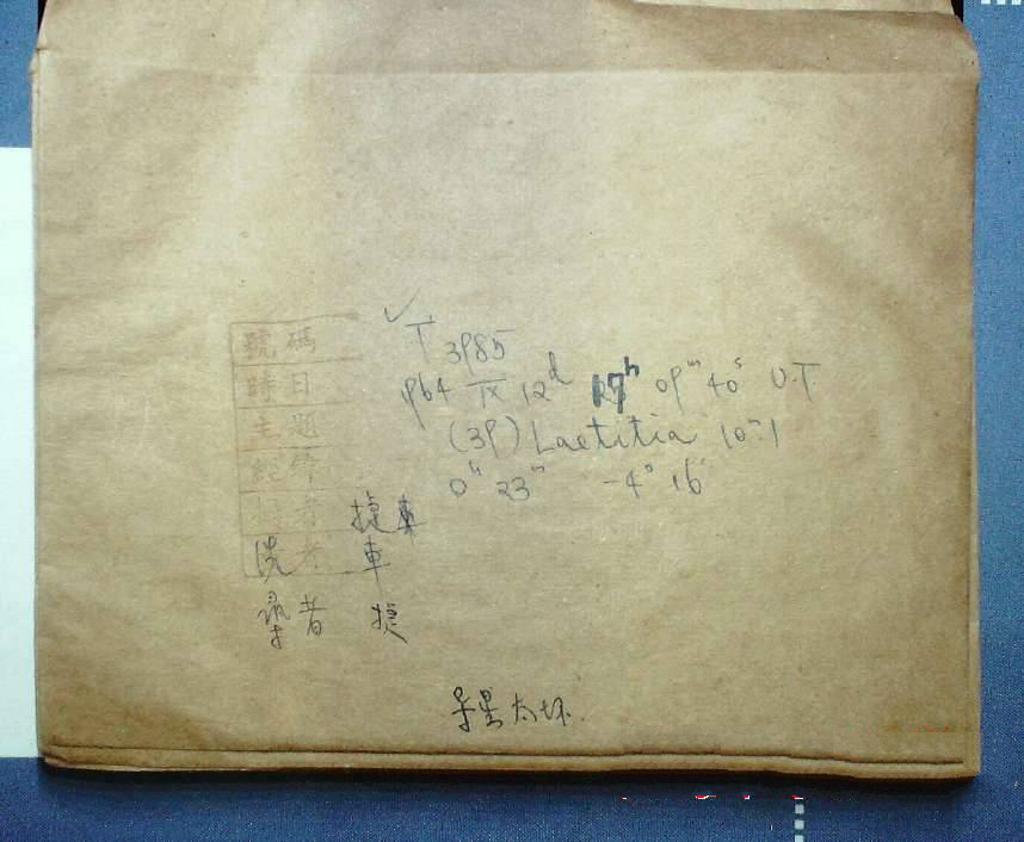 號碼 T 3985
時日 1964 IX 12d 17h 09m 40s U.T.
主題 (39) Laetitia 10m.1
經緯 0h 23m -4° 16'
者
洗者 車
尋者 捷
导星太坏.